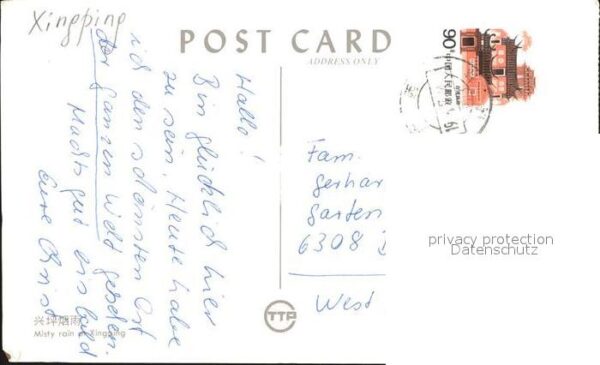 Xingping
POST CARD
ADDRESS ONLY
Hallo!
Bin glücklich hier
zu sein. Heute habe
ich den schönsten Ort
der ganzen Welt gesehen.
Machts gut ersbald
Eure Christ
Fam.
Gerhar
Garten
6308
West
90分
中国人民邮政
privacy protection
Datenschutz
TTP
兴坪烟雨
Misty rain Xingping